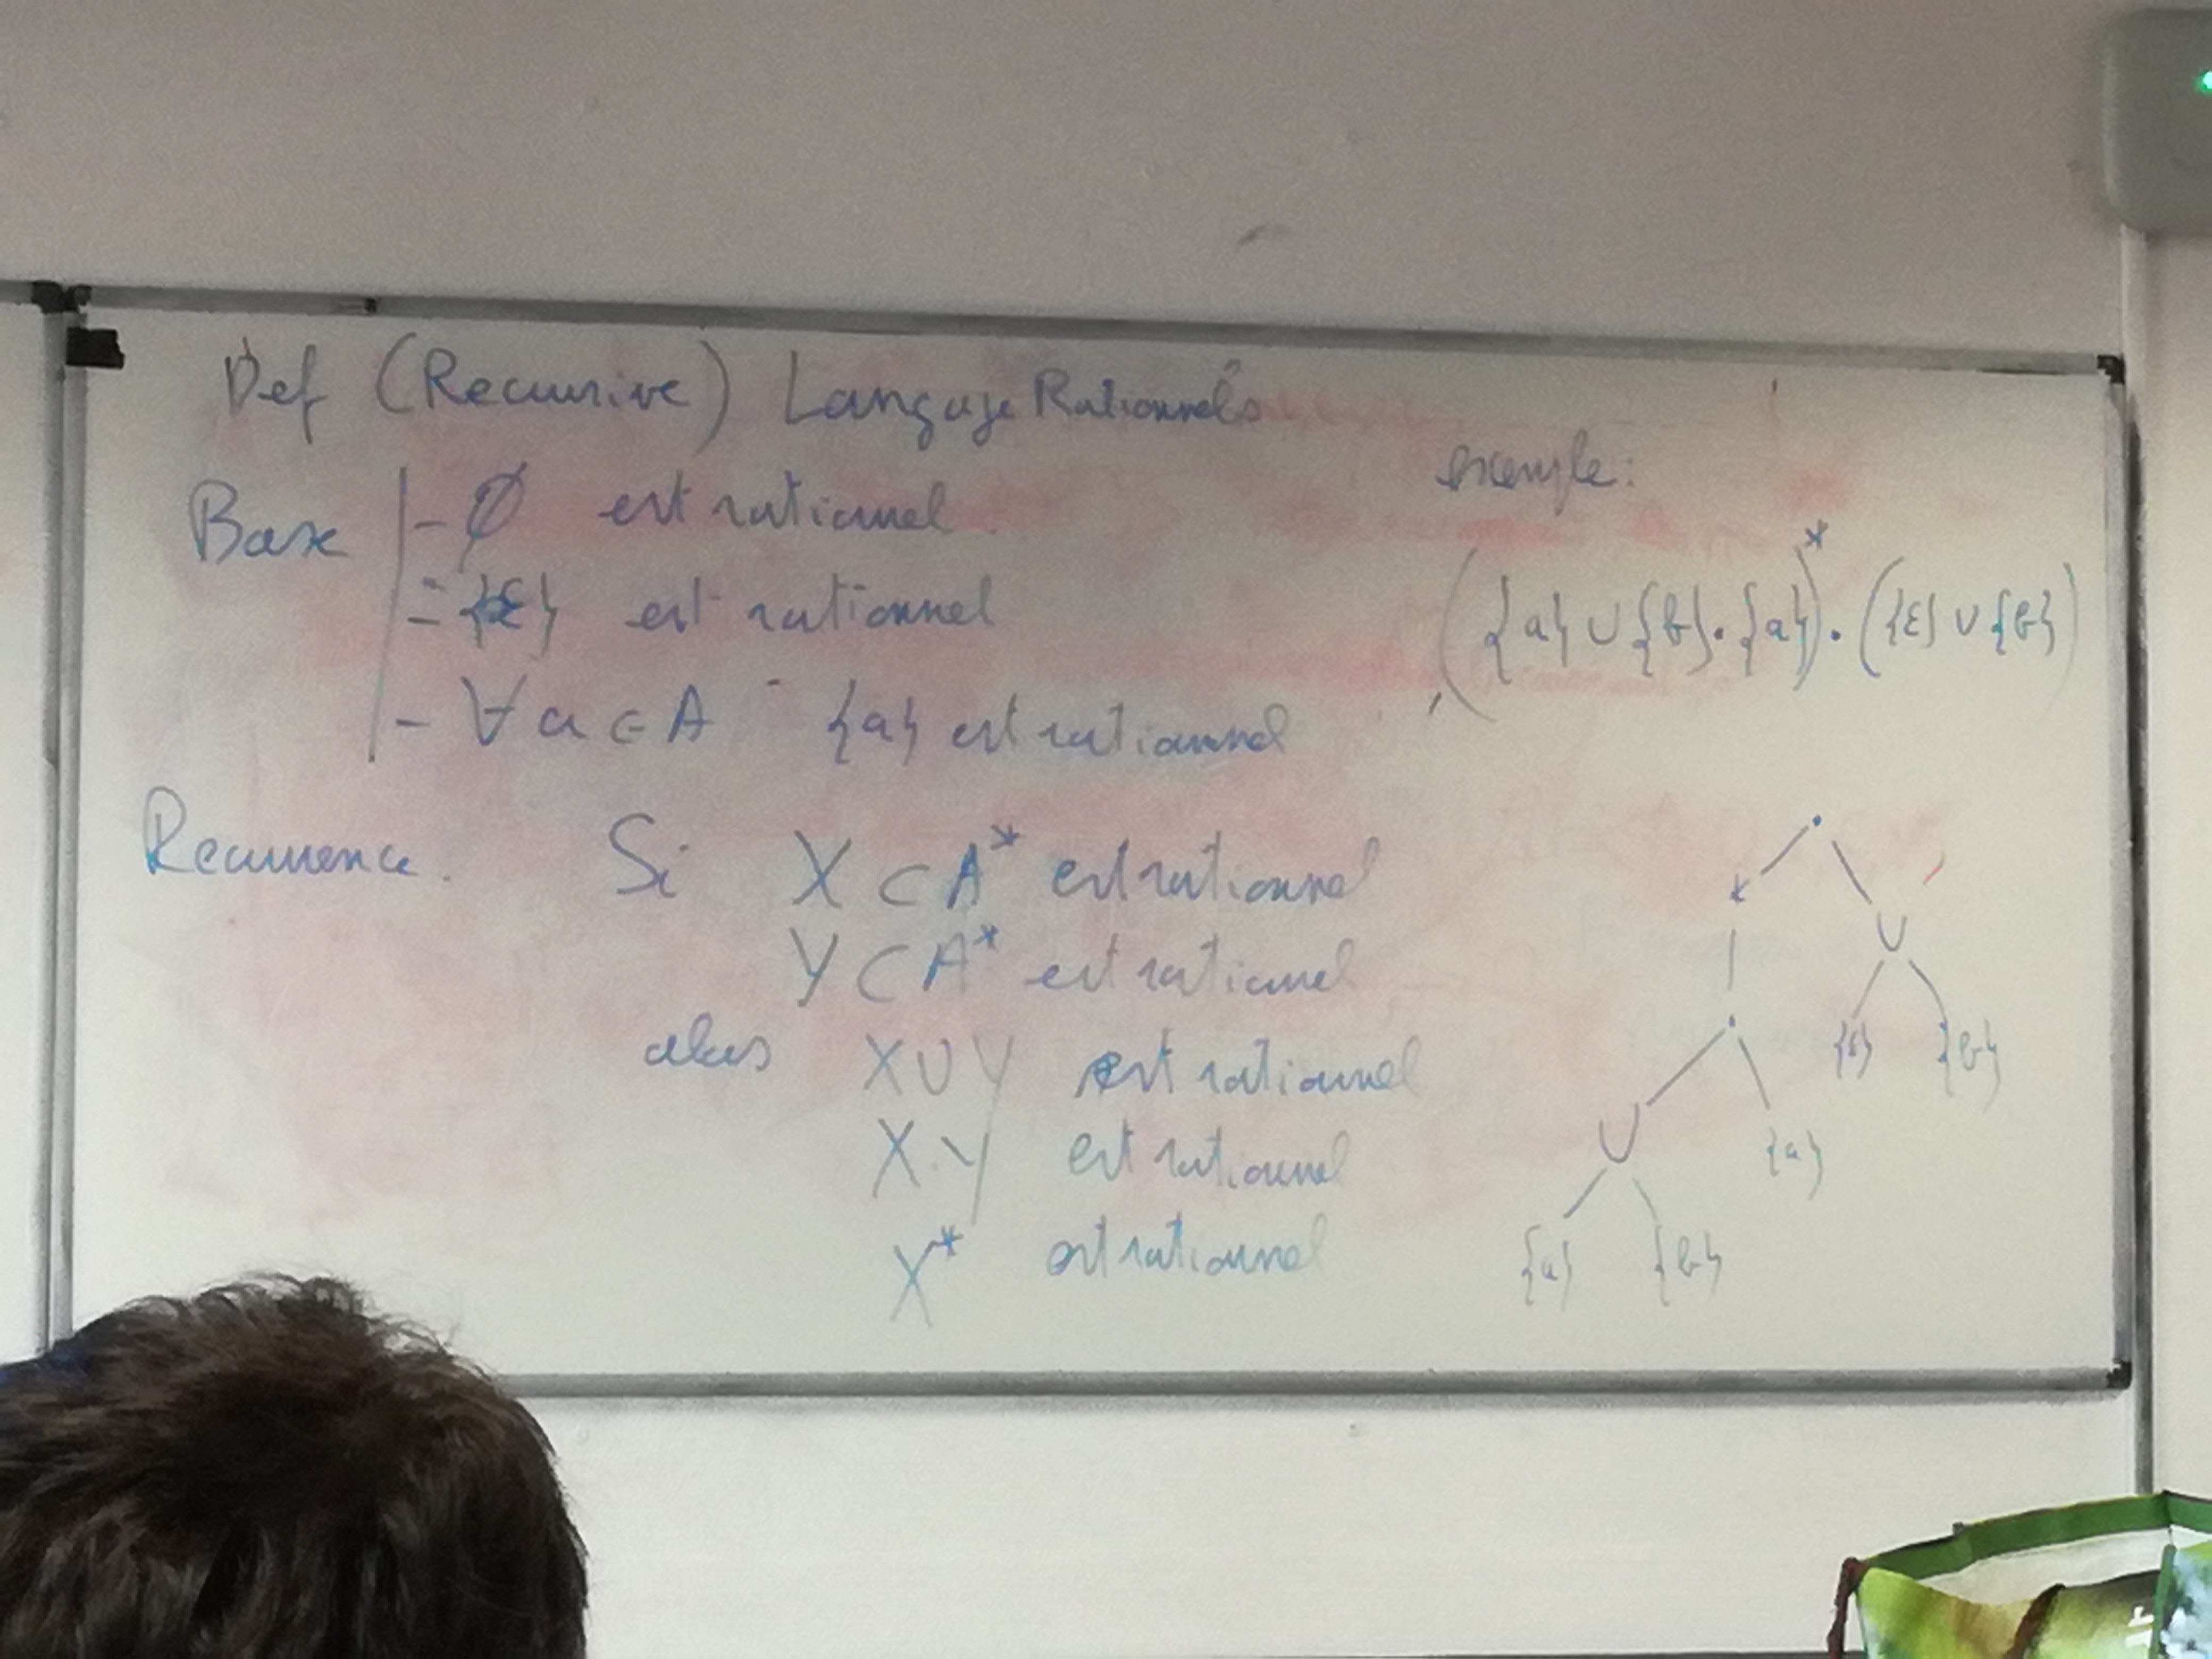 Def (Recursive) Langage Rationnels
Base - ∅ est rationnel
- {ε} est rationnel
- ∀ a ∈ A {a} est rationnel
Recurrence. Si X ⊂ A* est rationnel
Y ⊂ A* est rationnel
alors X ∪ Y est rationnel
X.Y est rationnel
X* est rationnel
exemple:
({a} ∪ {b}.{a})*.({ε} ∪ {b})
.
* ∪
. {ε} {b}
∪ {a}
{a} {b}